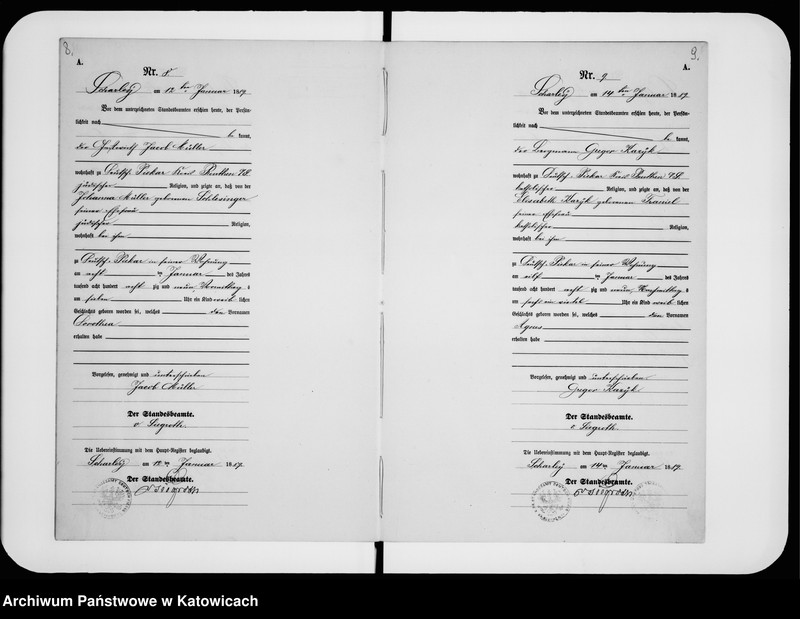 8.
A.
Nr. 8
Scharley am 12ten Januar 1889
Vor dem unterzeichneten Standesbeamten erschien heute, der Persön-
lichkeit nach
be kannt,
der Jacob Müller
wohnhaft zu Deutsch Piekar Kreis Beuthen O/S
jüdischer Religion, und zeigte an, daß von der
Johanna Müller geborenen Schlesinger
seiner Ehefrau
jüdischer Religion,
wohnhaft bei ihm
zu Deutsch Piekar in seiner Wohnung
am acht ten Januar des Jahres
tausend acht hundert acht zig und neun Vormittag s
um sieben Uhr ein Kind weib lichen
Geschlechts geboren worden sei, welches den Vornamen
Dorothea
erhalten habe
Vorgelesen, genehmigt und unterschrieben
Jacob Müller
Der Standesbeamte.
v Siegroth
Die Uebereinstimmung mit dem Haupt-Register beglaubigt.
Scharley am 12ten Januar 1889.
Der Standesbeamte.
v Siegroth
9.
A.
Nr. 9
Scharley am 14ten Januar 1889.
Vor dem unterzeichneten Standesbeamten erschien heute, der Persön-
lichkeit nach
be kannt,
der Bergmann Gregor Kazyk
wohnhaft zu Deutsch Piekar Kreis Beuthen O/S
katholischer Religion, und zeigte an, daß von der
Elisabeth Kazyk geborenen
seiner Ehefrau
katholischer Religion,
wohnhaft bei ihm
zu Deutsch Piekar in seiner Wohnung
am elf ten Januar des Jahres
tausend acht hundert acht zig und neun Nachmittag s
um sechs ein viertel Uhr ein Kind weib lichen
Geschlechts geboren worden sei, welches den Vornamen
Agnes
erhalten habe
Vorgelesen, genehmigt und unterschrieben
Gregor Kazyk
Der Standesbeamte.
v Siegroth
Die Uebereinstimmung mit dem Haupt-Register beglaubigt.
Scharley am 14ten Januar 1889.
Der Standesbeamte.
v Siegroth
Archiwum Państwowe w Katowicach